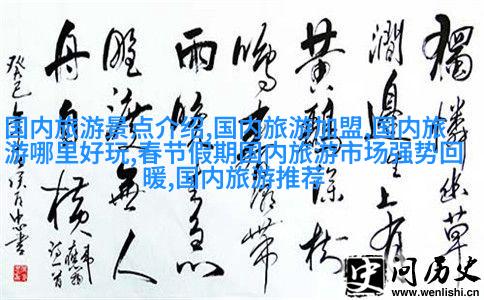 獨憐幽草
澗邊生上有
黄鸝深樹
鳴春潮帶
雨晚來急
野渡無人
舟自横
国内旅游景点介绍,国内旅游加盟,国内旅
游哪里好玩,春节假期国内旅游市场强势回
暖,国内旅游推荐
问历史
www.wenlishi.cn